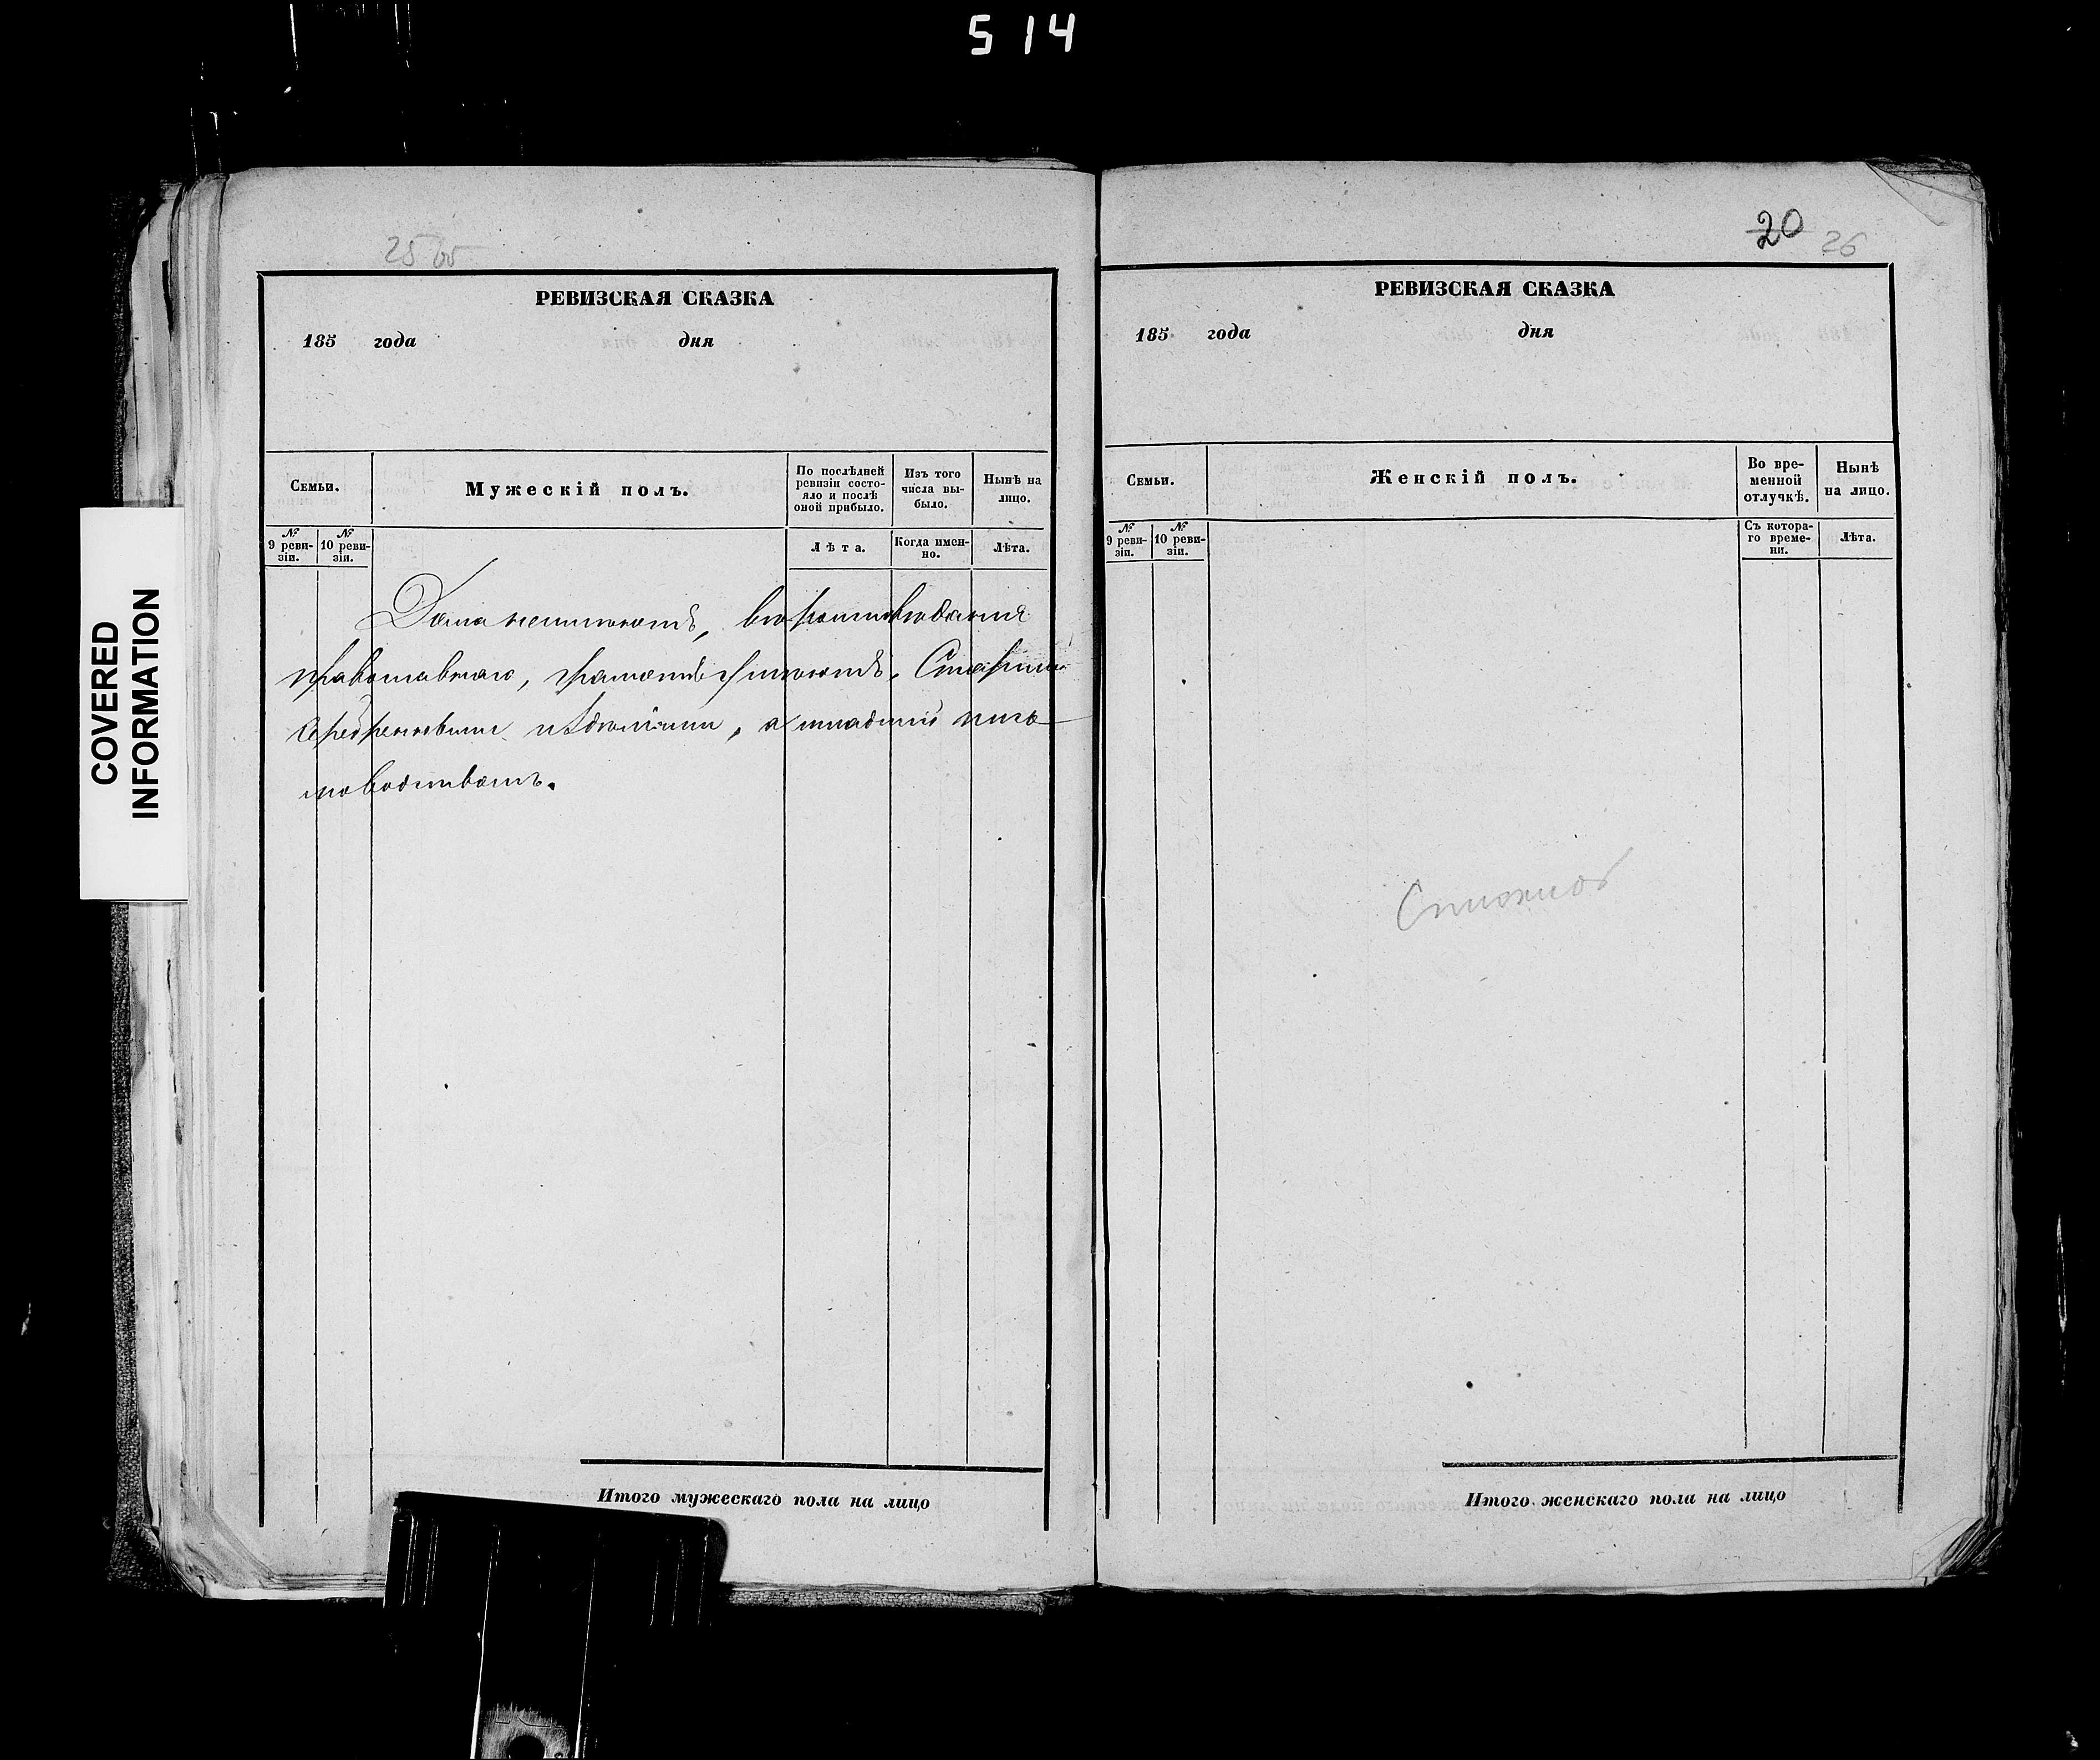 514
25 об
РЕВИЗСКАЯ СКАЗКА
185 года дня
Семьи.
Мужескій полъ.
По послѣдней ревизіи состояло и послѣ оной прибыло.
Изъ того числа выбыло.
Нынѣ на лицо.
№ 9 ревизіи.
№ 10 ревизіи.
Лѣта.
Когда именно.
Лѣта.
Дома неимѣютъ, вѣроисповѣданія
православнаго, грамотѣ умѣютъ. Старшій
издѣліями, а младшій пись
моводствомъ.
COVERED
INFORMATION
20 26
РЕВИЗСКАЯ СКАЗКА
185 года дня
Семьи.
Женскій полъ.
Во временной отлучкѣ.
Нынѣ на лицо.
№ 9 ревизіи.
№ 10 ревизіи.
Съ котораго времени.
Лѣта.
Итого мужескаго пола на лицо
Итого женскаго пола на лицо